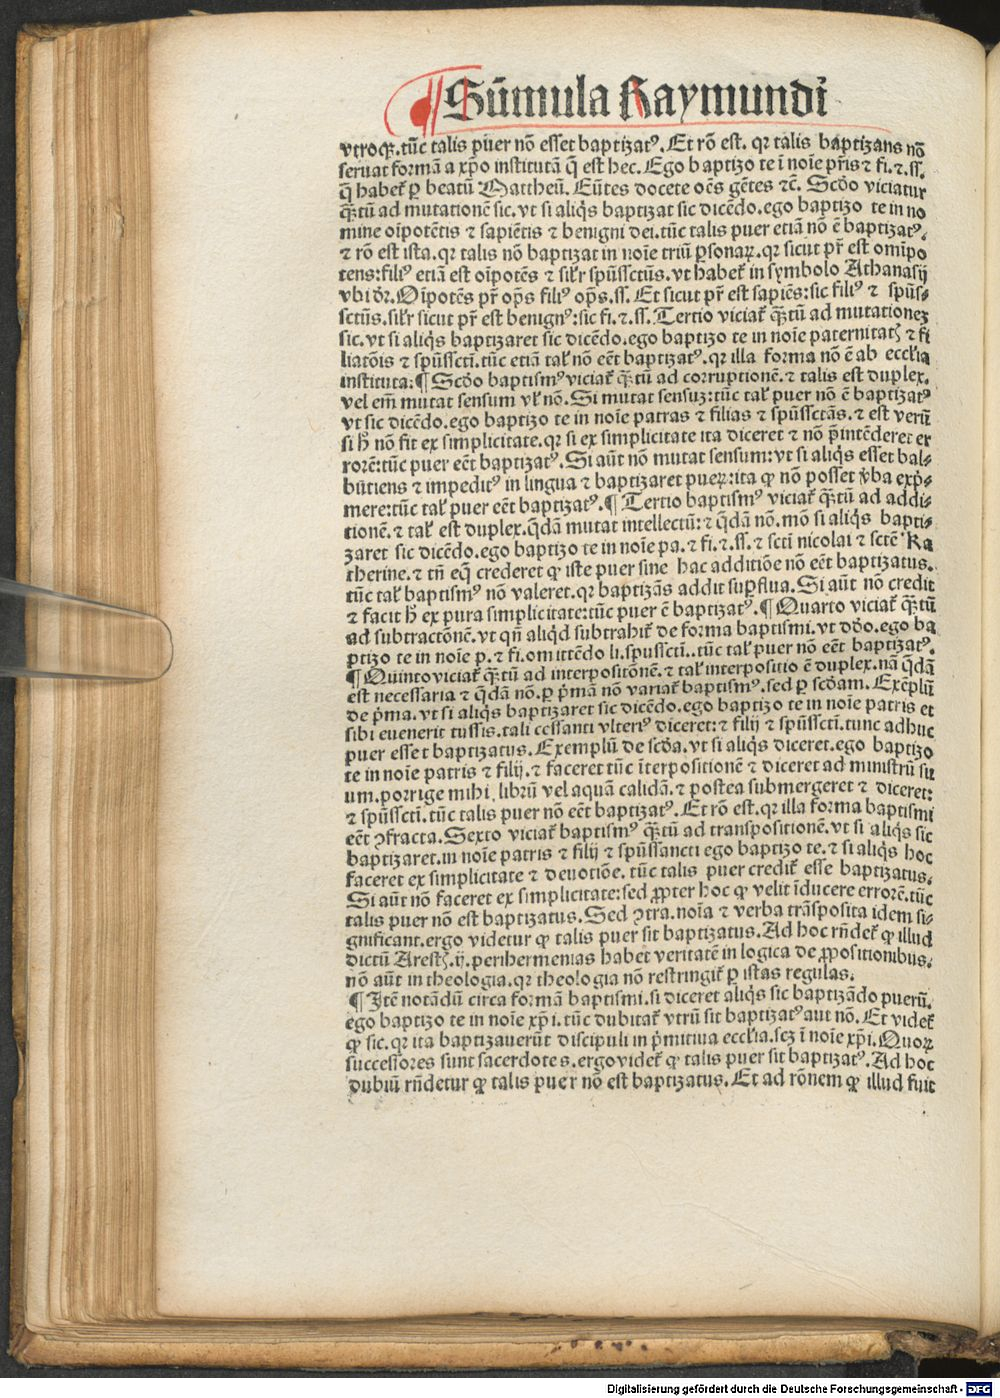 ¶ Sūmula Raymundi
vtroqꝫ. tūc talis puer nō esset baptizatꝰ. Et rō est. qr talis baptizans nō
seruat formā a xp̄o institutā q̄ est hec. Ego baptizo te ī noīe pr̄is ⁊ fi. ⁊. ſſ.
q̄ habet̄ ꝑ beatū Mattheū. Eūtes docete oēs gētes ⁊c̄. Scd̄o viciatur
q̄ꝫtū ad mutationē sic. vt si aliq̇s baptizat sic dicēdo. ego baptizo te in no
mine oīpotētis ⁊ sapiētis ⁊ benigni dei. tūc talis puer etiā nō ē baptizatꝰ.
⁊ rō est ista. qr talis nō baptizat in noīe triū ꝑsonaꝝ. qr sicut pr̄ est omīpo
tens: filiꝰ etiā est oīpotēs ⁊ sil'r spūssctūs. vt habet̄ in symbolo Athanasij
vbi dr̄. Oīpotēs pr̄ op̄s filiꝰ op̄s. ſſ. Et sicut pr̄ est sapiēs: sic filiꝰ ⁊ spūs-
sctūs. sil'r sicut pr̄ est benignꝰ: sic fi. ⁊. ſſ. Tertio viciat̄ q̄ꝫtū ad mutationeꝫ
sic. vt si aliq̇s baptizaret sic dicēdo. ego baptizo te in noīe paternitatꝭ ⁊ fi
liatōis ⁊ spūsscti. tūc etiā tal' nō eēt baptizatꝰ. qr illa forma nō ē ab eccl'ia
instituta: ¶ Scd̄o baptismꝰ viciat̄ q̄ꝫtū ad corruptionē. ⁊ talis est duplex.
vel em̄ mutat sensum vl' nō. Si mutat sensuꝫ: tūc tal' puer nō ē baptizatꝰ
vt sic dicēdo. ego baptizo te in noīe patras ⁊ filias ⁊ spūssctās. ⁊ est verū
si h̄ nō fit ex simplicitate. qr si ex simplicitate ita diceret ⁊ nō p̄intēderet er
rorē: tūc puer eēt baptizatꝰ. Si aūt nō mutat sensum: vt si aliq̇s esset bal-
būtiens ⁊ impeditꝰ in lingua ⁊ baptizaret pueꝝ: ita ꝙ nō posset v̄ba exp̄-
mere: tūc tal' puer eēt baptizatꝰ. ¶ Tertio baptismꝰ viciat̄ q̄ꝫtū ad addi-
tionē. ⁊ tal' est duplex. q̄dā mutat intellectū: ⁊ q̄dā nō. mō si aliq̇s bapti-
zaret sic dicēdo. ego baptizo te in noīe pa. ⁊ fi. ⁊. ſſ. ⁊ scti nicolai ⁊ sctē Ka
therine. ⁊ tn̄ eq̄ crederet ꝙ iste puer sine hac additiōe nō eēt baptizatus.
tūc tal' baptismꝰ nō valeret. qr baptizās addit suꝑflua. Si aūt nō credit
⁊ facit h̄ ex pura simplicitate: tūc puer ē baptizatꝰ. ¶ Quarto viciat̄ q̄ꝫtū
ad subtractōnē. vt qn̄ aliq̇d subtrahit̄ de forma baptismi. vt dd̄o. ego ba
ptizo te in noīe p. ⁊ fi. omittēdo li. spūsscti.. tūc tal' puer nō eēt baptizatꝰ.
¶ Quinto viciat̄ q̄ꝫtū ad interpositōnē. ⁊ tal' interpositio ē duplex. nā q̄dā
est necessaria ⁊ q̄dā nō. ꝑ p̄mā nō variat̄ baptismꝰ. sed ꝑ scd̄am. Exēplū
de p̄ma. vt si aliq̇s baptizaret sic dicēdo. ego baptizo te in noīe patris et
sibi euenerit tussis. tali cessanti vlteriꝰ diceret: ⁊ filij ⁊ spūsscti. tunc adhuc
puer esset baptizatus. Exemplū de scd̄a. vt si aliq̇s diceret. ego baptizo
te in noīe patris ⁊ filij. ⁊ faceret tūc īterpositionē ⁊ diceret ad ministrū su
um. porrige mihi librū vel aquā calidā. ⁊ postea submergeret ⁊ diceret:
⁊ spūsscti. tūc talis puer nō eēt baptizatꝰ. Et rō est. qr illa forma baptismi
eēt ꝯfracta. Sexto viciat̄ baptismꝰ q̄ꝫtū ad transpositionē. vt si aliq̇s sic
baptizaret. in noīe patris ⁊ filij ⁊ spūssancti ego baptizo te. ⁊ si aliq̇s hoc
faceret ex simplicitate ⁊ deuotiōe. tūc talis puer credit̄ esse baptizatus.
Si aūt nō faceret ex simplicitate: sed ꝓpter hoc ꝙ velit īducere errorē. tūc
talis puer nō est baptizatus. Sed ꝯtra. noīa ⁊ verba trāsposita idem si-
gnificant. ergo videtur ꝙ talis puer sit baptizatus. Ad hoc rn̄det̄ ꝙ illud
dictū Arestꝭ. ij. perihermenias habet veritatē in logica de ꝓpositionibus.
nō aūt in theologia. qr theologia nō restringit̄ ꝑ istas regulas.
¶ Itē notādū circa formā baptismi. si diceret aliq̇s sic baptizādo puerū.
ego baptizo te in noīe xp̄i. tūc dubitat̄ vtrū sit baptizatꝰ aut nō. Et videt̄
ꝙ sic. qr ita baptizauerūt discipuli in p̄mitiua eccl'ia. scꝫ ī noīe xp̄i. Quoꝝ
successores sunt sacerdotes. ergo videt̄ ꝙ talis puer sit baptizatꝰ. Ad hoc
dubiū rn̄detur ꝙ talis puer nō est baptizatus. Et ad rōnem ꝙ illud fuit
Digitalisierung gefördert durch die Deutsche Forschungsgemeinschaft - DFG